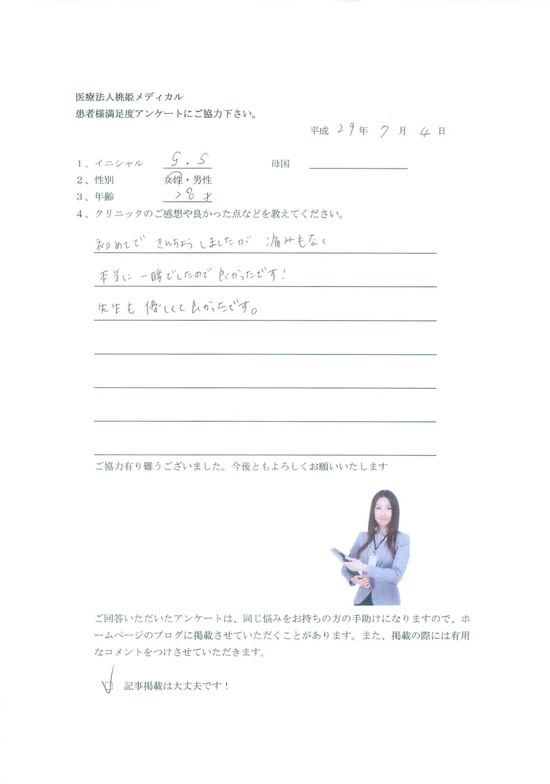 医療法人桃姫メディカル
患者様満足度アンケートにご協力下さい。
平成 29 年 7 月 4 日
1、イニシャル G.S 母国
2、性別 女性・男性
3、年齢 28才
4、クリニックのご感想や良かった点などを教えてください。
初めてで きんちょうしましたが 痛みもなく
本当に 一瞬でしたので 良かったです！
先生も 優しくて良かったです。
ご協力有り難うございました。今後ともよろしくお願いいたします
ご回答いただいたアンケートは、同じ悩みをお持ちの方の手助けになりますので、ホ
ームページのブログに掲載させていただくことがあります。また、掲載の際には有用
なコメントをつけさせていただきます。
記事掲載は大丈夫です！